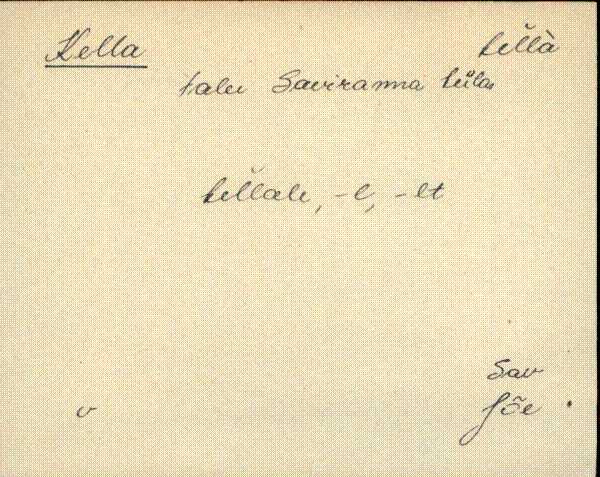 Kella kel̆là
talu Saviranna külas
kel̆lale, -l, -lt
Sav
v Jõe